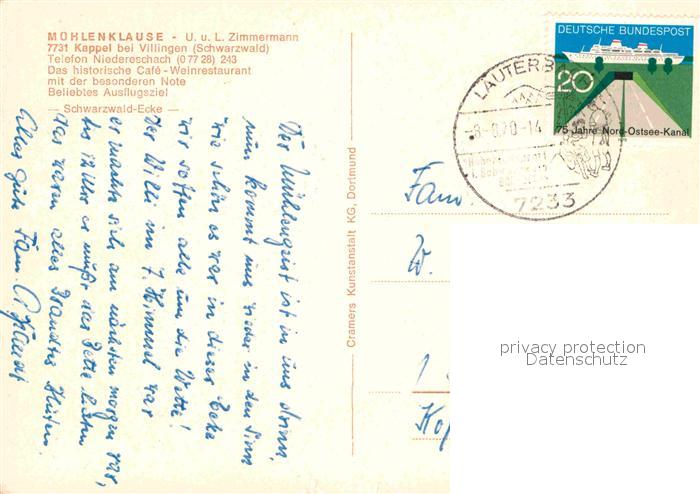 MÜHLENKLAUSE - U. u. L. Zimmermann
7731 Kappel bei Villingen (Schwarzwald)
Telefon Niedereschach (0 77 28) 243
Das historische Café - Weinrestaurant
mit der besonderen Note
Beliebtes Ausflugsziel
— Schwarzwald-Ecke —
Der Mühlengeist ist in uns drinn,
nun kommt uns wieder in den Sinn
wie schön es war in dieser Ecke
wir soffen alle um die Wette!
Der Willi im 7. Himmel war
er machte sich am nächsten morgen rar,
der er mußte das Bette hüten
das waren alles Hüten.
Alles gute Fam.
Cramers Kunstanstalt KG, Dortmund
DEUTSCHE BUNDESPOST
20
75 Jahre Nord-Ostsee-Kanal
LAUTERBA
70-14
7233
Fam.
W.
privacy protection
Datenschutz